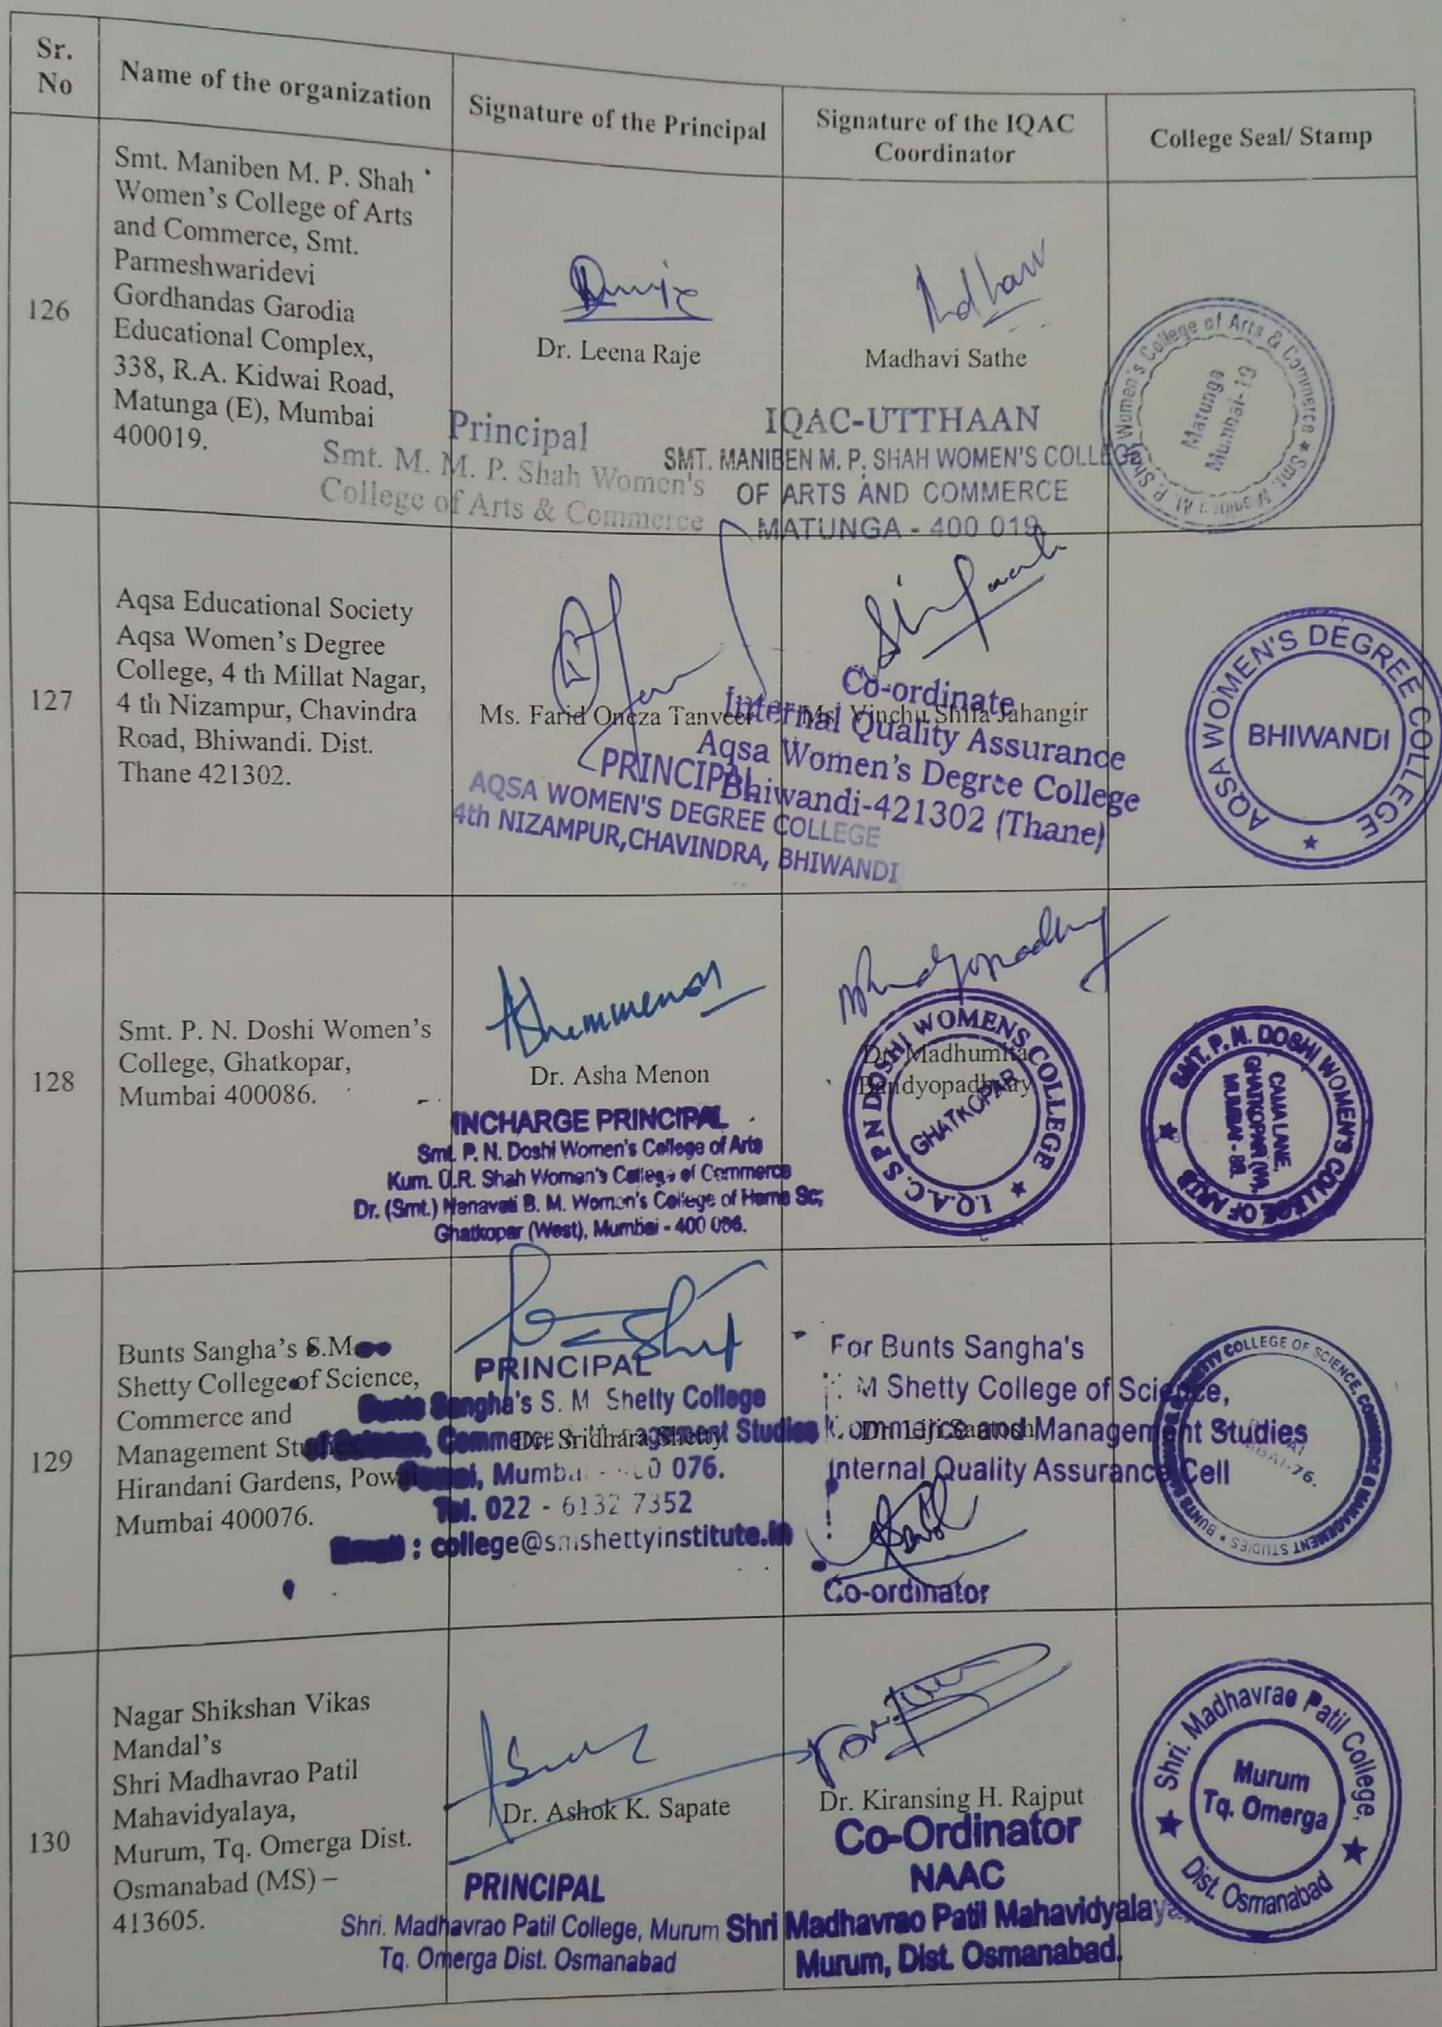 Sr.
No
Name of the organization
Signature of the Principal
Signature of the IQAC
Coordinator
College Seal/ Stamp
126
Smt. Maniben M. P. Shah
Women's College of Arts
and Commerce, Smt.
Parmeshwaridevi
Gordhandas Garodia
Educational Complex,
338, R.A. Kidwai Road,
Matunga (E), Mumbai
400019.
Dr. Leena Raje
Principal
Smt. M. M. P. Shah Women's
College of Arts & Commerce
Madhavi Sathe
IQAC-UTTHAAN
SMT. MANIBEN M. P. SHAH WOMEN'S COLLEGE
OF ARTS AND COMMERCE
MATUNGA - 400 019
Smt. Maniben M. P. Shah Women's College of Arts & Commerce
Matunga
Mumbai-19
127
Aqsa Educational Society
Aqsa Women's Degree
College, 4 th Millat Nagar,
4 th Nizampur, Chavindra
Road, Bhiwandi. Dist.
Thane 421302.
Ms. Farid Oneza Tanveer
PRINCIPAL
AQSA WOMEN'S DEGREE COLLEGE
4th NIZAMPUR,CHAVINDRA, BHIWANDI
Ms. Vinchu Shifa Jahangir
Co-ordinate
Internal Quality Assurance
Aqsa Women's Degree College
Bhiwandi-421302 (Thane)
AQSA WOMEN'S DEGREE COLLEGE
BHIWANDI
128
Smt. P. N. Doshi Women's
College, Ghatkopar,
Mumbai 400086.
Dr. Asha Menon
INCHARGE PRINCIPAL
Smt. P. N. Doshi Women's College of Arts
Kum. U.R. Shah Women's College of Commerce
Dr. (Smt.) Nanavati B. M. Women's College of Home Sc,
Ghatkopar (West), Mumbai - 400 086.
Dr. Madhumita
Bandyopadhyay
I.Q.A.C. S P N DOSHI WOMENS COLLEGE
GHATKOPAR
SMT. P. N. DOSHI WOMEN'S COLLEGE OF ARTS
CAMA LANE,
GHATKOPAR (W),
MUMBAI - 86.
129
Bunts Sangha's S.M
Shetty College of Science,
Commerce and
Management Studies,
Hirandani Gardens, Powai
Mumbai 400076.
PRINCIPAL
Bunts Sangha's S. M Shetty College
of Science, Commerce Management Studies
Dr. Sridhara Shetty
Powai, Mumbai - 400 076.
Tel. 022 - 6132 7352
Email : college@smshettyinstitute.in
For Bunts Sangha's
S M Shetty College of Science,
Commerce and Management Studies
Dr. Liji Santosh
Internal Quality Assurance Cell
Co-ordinator
BUNTS SHETTY COLLEGE OF SCIENCE, COMMERCE & MANAGEMENT STUDIES
MUMBAI-76.
130
Nagar Shikshan Vikas
Mandal's
Shri Madhavrao Patil
Mahavidyalaya,
Murum, Tq. Omerga Dist.
Osmanabad (MS) –
413605.
Dr. Ashok K. Sapate
PRINCIPAL
Shri. Madhavrao Patil College, Murum
Tq. Omerga Dist. Osmanabad
Dr. Kiransing H. Rajput
Co-Ordinator
NAAC
Shri Madhavrao Patil Mahavidyalaya
Murum, Dist. Osmanabad.
Shri. Madhavrao Patil College,
Murum
Tq. Omerga
Dist. Osmanabad